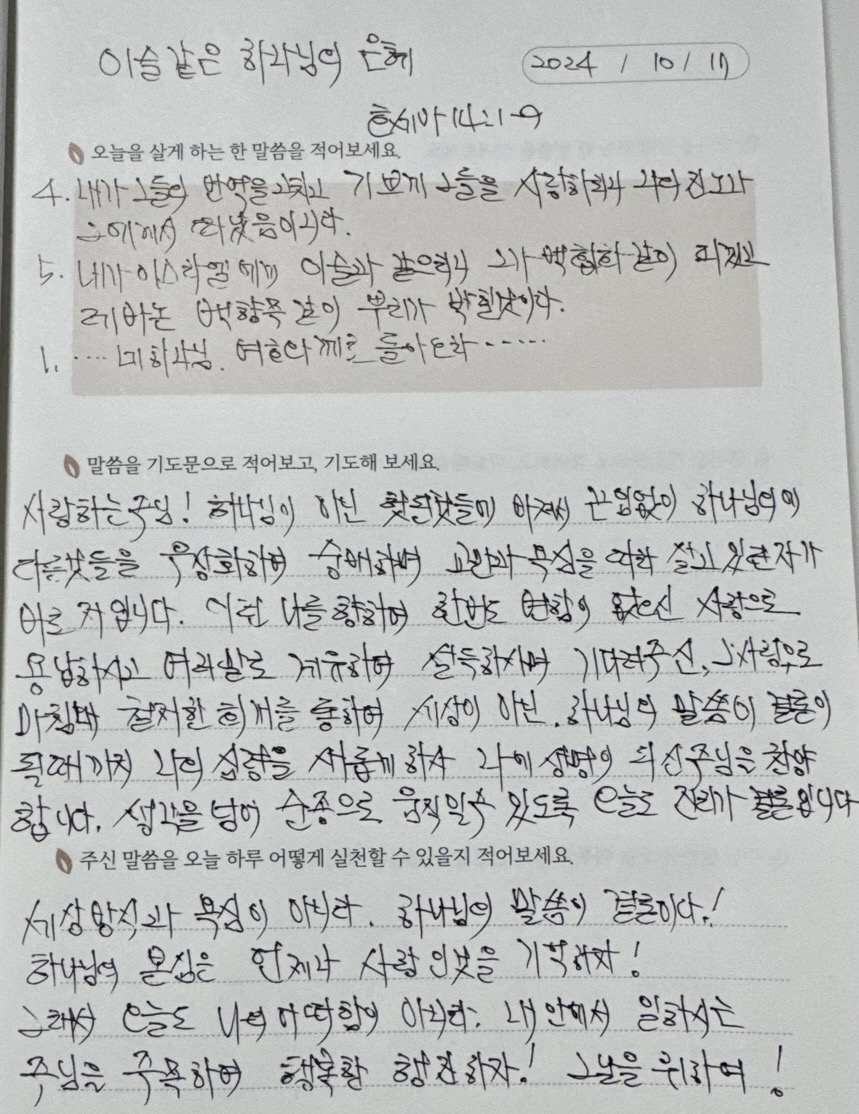 이슬같은 하나님의 은혜
2024 / 10 / 17
호세아 14:1-9
오늘을 살게 하는 한 말씀을 적어보세요.
4. 내가 그들의 반역을 고치고 기쁘게 그들을 사랑하리니 나의 진노가
그에게서 떠났음이니라.
5. 내가 이스라엘에게 이슬과 같으리니 그가 백합화같이 피겠고
레바논 백향목같이 뿌리가 박힐것이라.
1. .... 네 하나님 여호와께로 돌아오라 ......
말씀을 기도문으로 적어보고, 기도해 보세요.
사랑하는 주님! 하나님이 아닌 헛된것들에 빠져서 끈임없이 하나님외에
다른것들을 우상화하여 숭배하며 교만과 욕심을 위한 삶고 있던자가
바로 저입니다. 이런 나를 향하여 한번도 변함이 없으신 사랑으로
용납하시고 여러말로 계유하여 설득하시며 기다려주신, 그사랑으로
마침내 철저한 회개를 통하여 세상이 아닌, 하나님의 말씀이 결론이
될때까지 나의 심령을 새롭게 하사 나에 생명이 되신 주님을 찬양
합니다. 생각을 넘어 순종으로 움직일수 있도록 오늘도 진리가 결론입니다
주신 말씀을 오늘 하루 어떻게 실천할 수 있을지 적어보세요.
세상방식과 욕심이 아니라. 하나님의 말씀이 결론이다.!
하나님의 본심은 언제나 사랑인것을 기억하자!
그래서 오늘도 나의 어떠함이 아니라. 내 안에서 일하시는
주님을 주목하여 행복한 행진하자! 그날을 위하여!